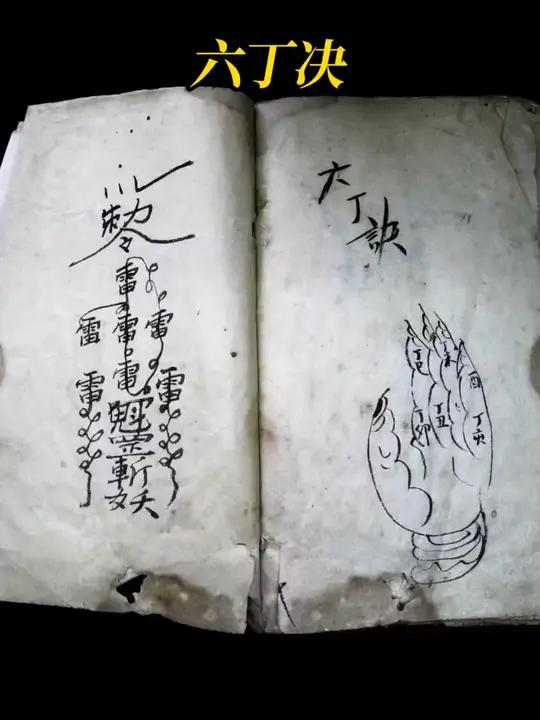 六丁决
雷
雷 雷 雷
雷 電 雷
魁
罡
斬
妖
六丁訣
丁巳
未
酉
丁卯
丁丑
丁亥